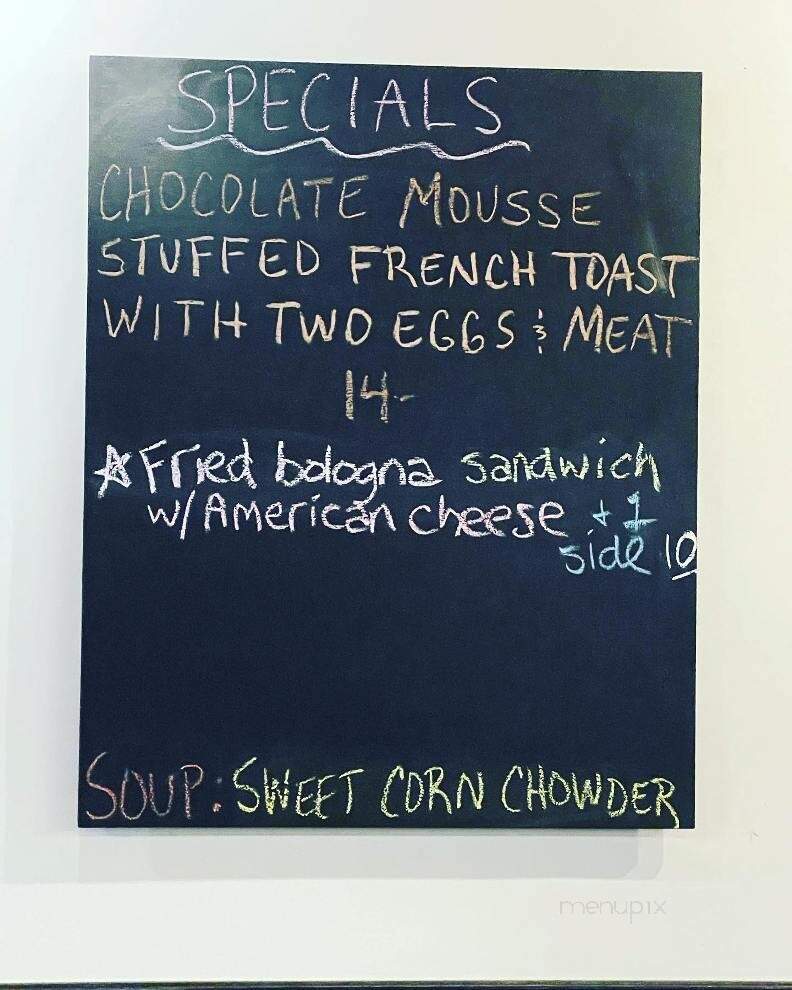 SPECIALS
CHOCOLATE MOUSSE
STUFFED FRENCH TOAST
WITH TWO EGGS & MEAT
14-
☆Fried bologna sandwich
w/American cheese + 1
side 10
SOUP: SWEET CORN CHOWDER
menupix